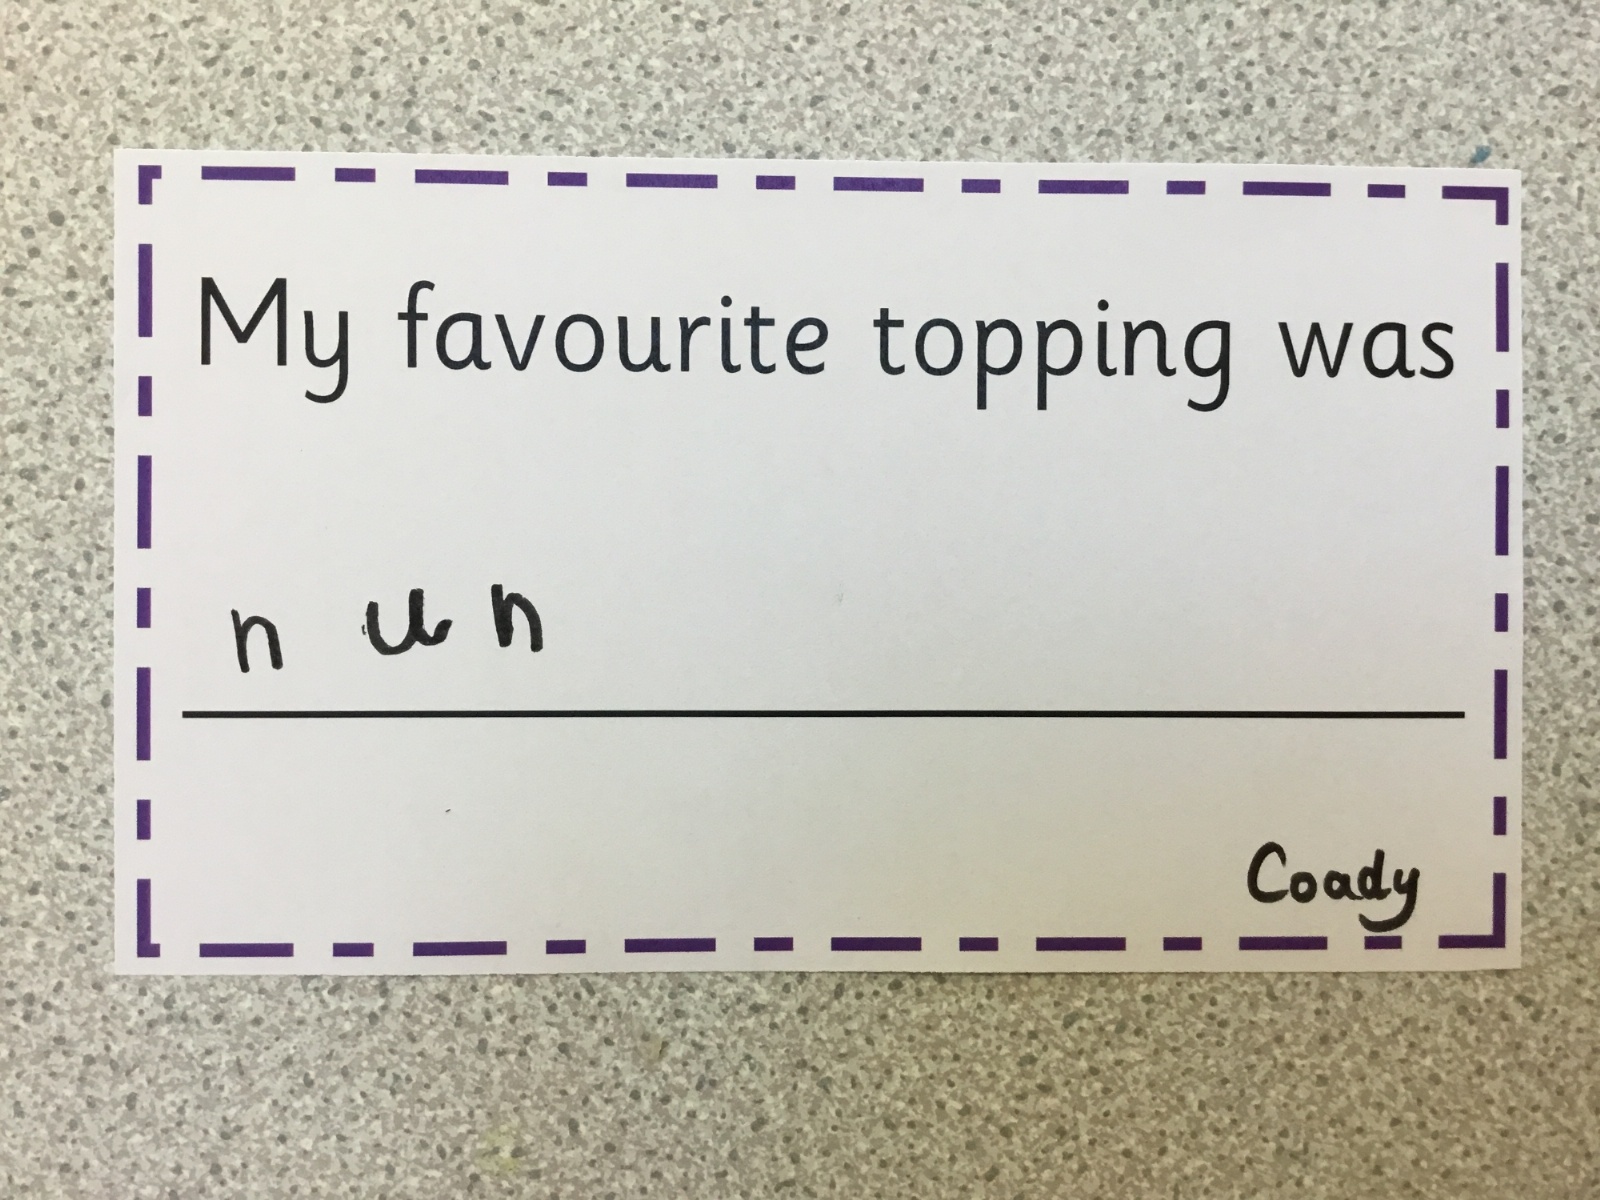 My favourite topping was
nun
Coady